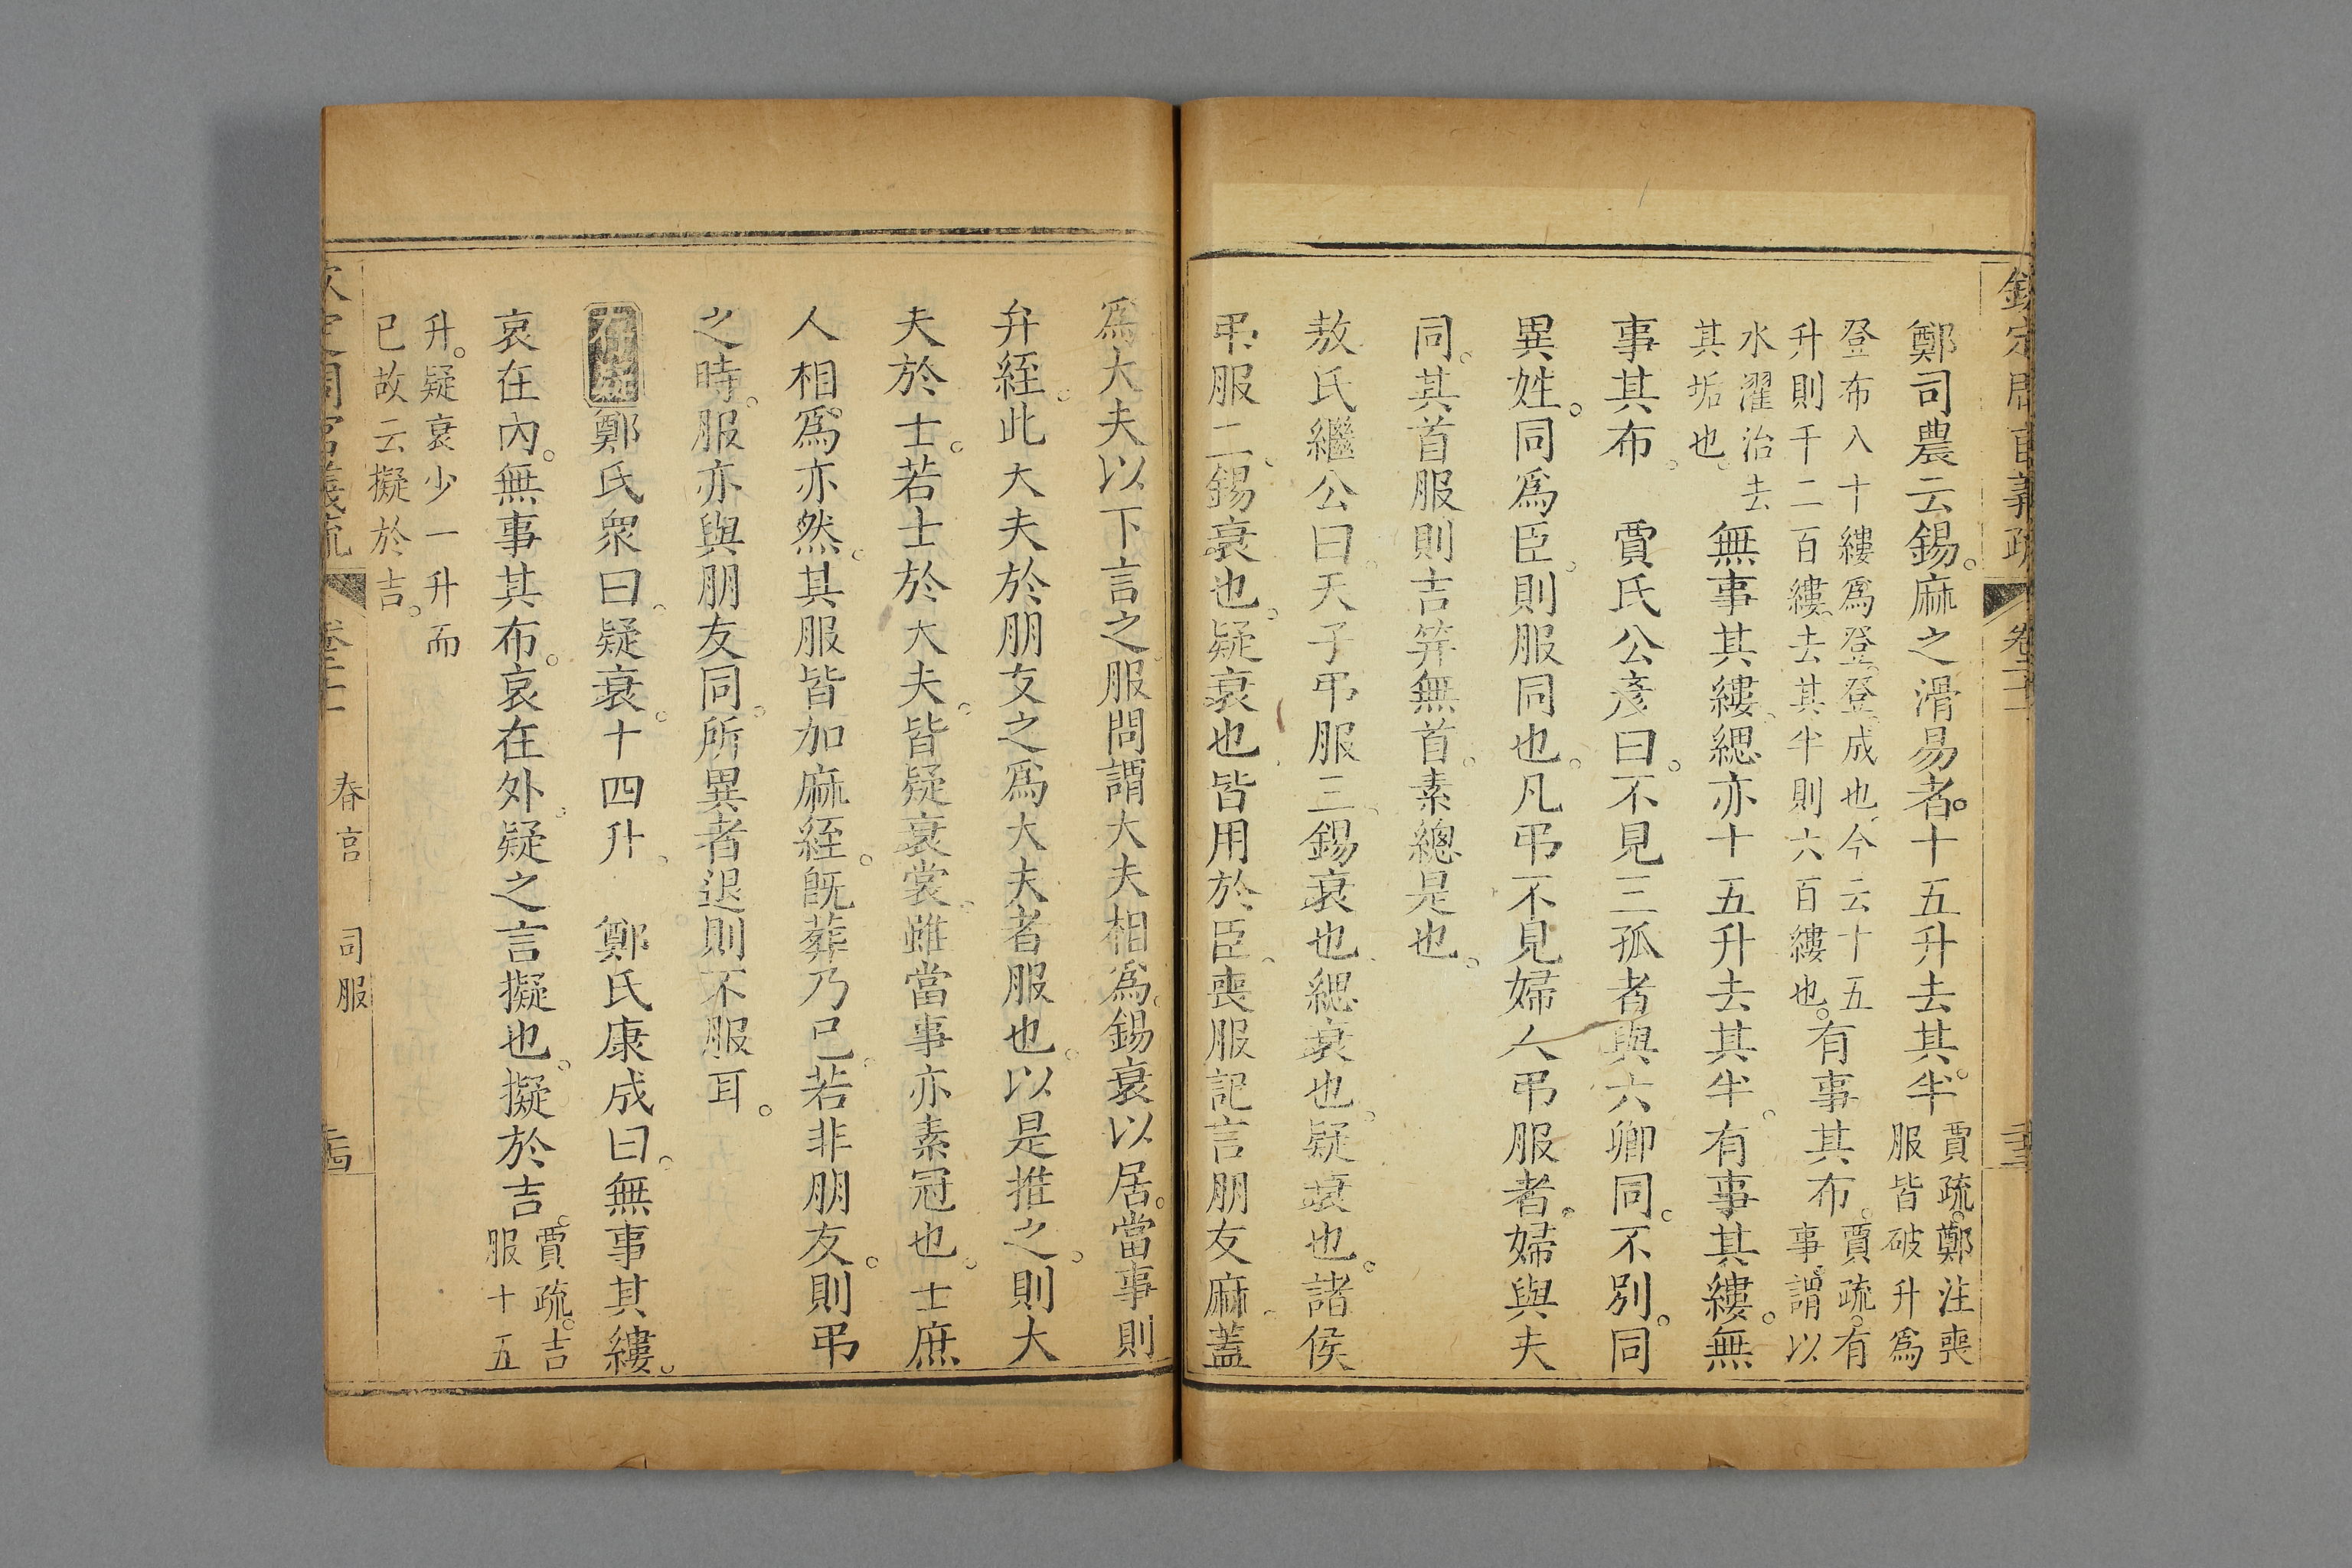 鄭司農云錫。麻之滑易者。十五升去其半。賈疏。鄭注喪服皆破升爲
登布八十縷爲登。登。成也。今云十五升則千二百縷。去其半則六百縷也。有事其布。賈疏。有事。謂以
水濯治去其垢也。無事其縷。緦亦十五升去其半。有事其縷。無
事其布。 賈氏公彥曰。不見三孤者。與六卿同。不別。同
異姓。同爲臣。則服同也。凡弔不見婦人弔服者。婦與夫
同。其首服則吉筓無首。素總是也。
敖氏繼公曰。天子弔服三。錫衰也。緦衰也。疑衰也。諸侯
弔服二。錫衰也。疑衰也。皆用於臣。喪服記言朋友麻。蓋
爲大夫以下言之。服問謂大夫相爲。錫衰以居。當事則
弁絰。此大夫於朋友之爲大夫者服也。以是推之。則大
夫於士。若士於大夫。皆疑衰裳。雖當事亦素冠也。士庶
人相爲亦然。其服皆加麻絰。旣葬乃已。若非朋友。則弔
之時。服亦與朋友同。所異者退則不服耳。
鄭氏衆曰。疑衰。十四升。 鄭氏康成曰。無事其縷。
哀在內。無事其布。哀在外。疑之言擬也。擬於吉。賈疏。吉服十五
升。疑衰少一升而已。故云擬於吉。
春官 司服